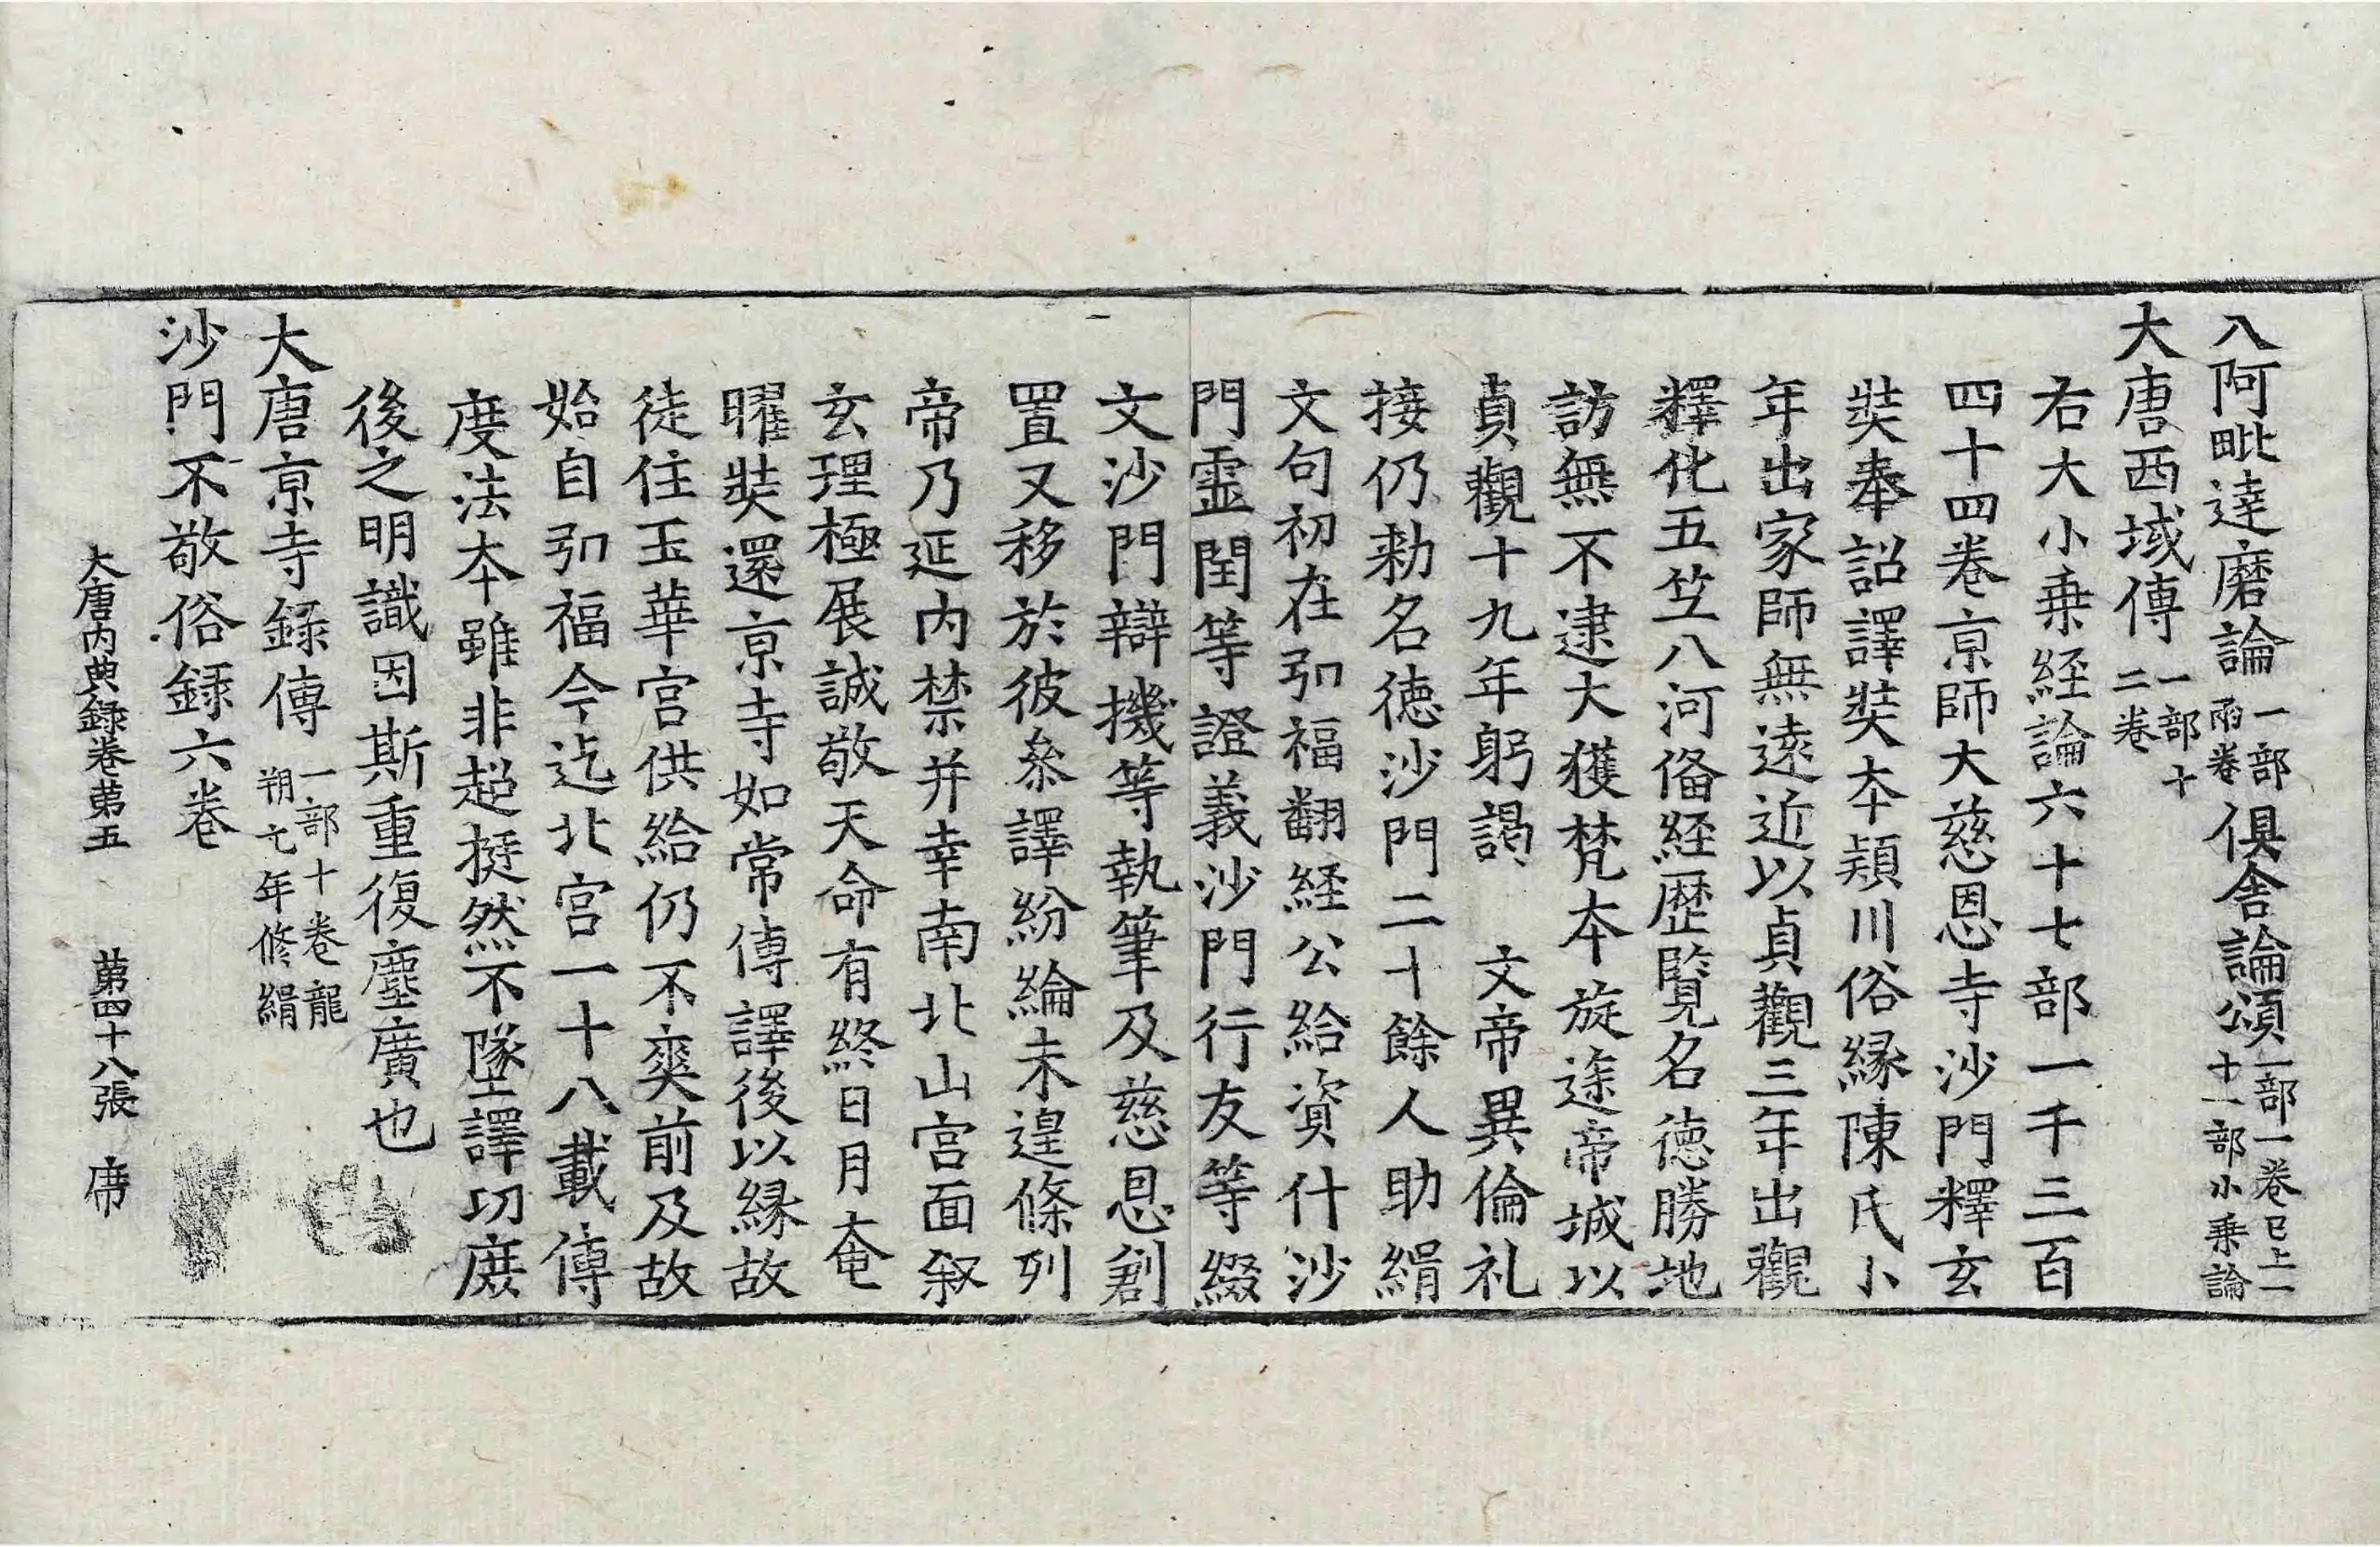 八阿毗達磨論一部兩卷俱舍論頌一部一卷已上一十一部小乗論
大唐西域傳一部十二卷
右大小乗経論六十七部一千三百
四十四卷京師大慈恩寺沙門釋玄
奘奉詔譯奘本頴川俗縁陳氏小
年出家師無逺近以貞觀三年出觀
釋化五竺八河俻経歴覧名徳勝地
訪無不逮大獲梵本旋途帝城以
貞觀十九年躬謁　文帝異倫礼
接仍勑名徳沙門二十餘人助緝
文句初在弘福翻経公給資什沙
門霊閏等證義沙門行友等綴
文沙門辯機等執筆及慈恩創
置又移於彼叅譯紛綸未遑條列
帝乃延内禁并幸南北山宫面叙
玄理極展誠敬天命有終日月奄
曜奘還京寺如常傳譯後以縁故
徒住玉華宫供給仍不爽前及故
始自弘福今迄北宫一十八載傳
度法本雖非超挺然不墜譯功庻
後之明識因斯重復塵廣也
大唐京寺録傳一部十卷龍朔七年修緝
沙門不敬俗録六卷
大唐内典録卷第五　第四十八張　席